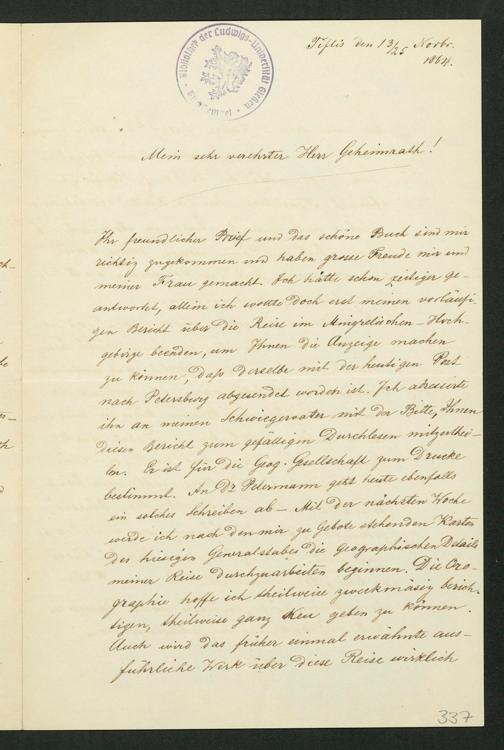 Bibliothek der Ludwigs-Universität Gießen
Tiflis den 13/25 Novbr.
1864.
Mein sehr verehrter Herr Geheimrath!
Ihr freundlicher Brief und das schöne Buch sind mir
richtig zugekommen und haben grosse Freude mir und
meiner Frau gemacht. Ich hätte schon zeitiger ge-
antwortet, allein ich wollte doch erst meinen vorläufi-
gen Bericht über die Reise im Mingrelischen-Hoch-
gebirge beenden, um Ihnen die Anzeige machen
zu können, daß derselbe mit der heutigen Post
nach Petersburg abgesendet worden ist. Ich adressirte
ihn an meinen Schwiegervater mit der Bitte, Ihnen
diesen Bericht zum gefälligen Durchlesen mitzuthei-
len. Er ist für die Geog. Gsellschaft zum Drucke
bestimmt. An Dr Petermann geht heute ebenfalls
ein solches Schreiben ab – Mit der nächsten Woche
werde ich nach den mir zu Gebote stehenden Karten
des hiesigen Generalstabes die geographischen Details
meiner Reise durchzuarbeiten beginnen. Die Oro-
graphie hoffe ich theilweise zweckmäsig berich-
tigen, theilweise ganz Neu geben zu können.
Auch wird das früher einmal erwähnte aus-
führliche Werk über diese Reise wirklich
337